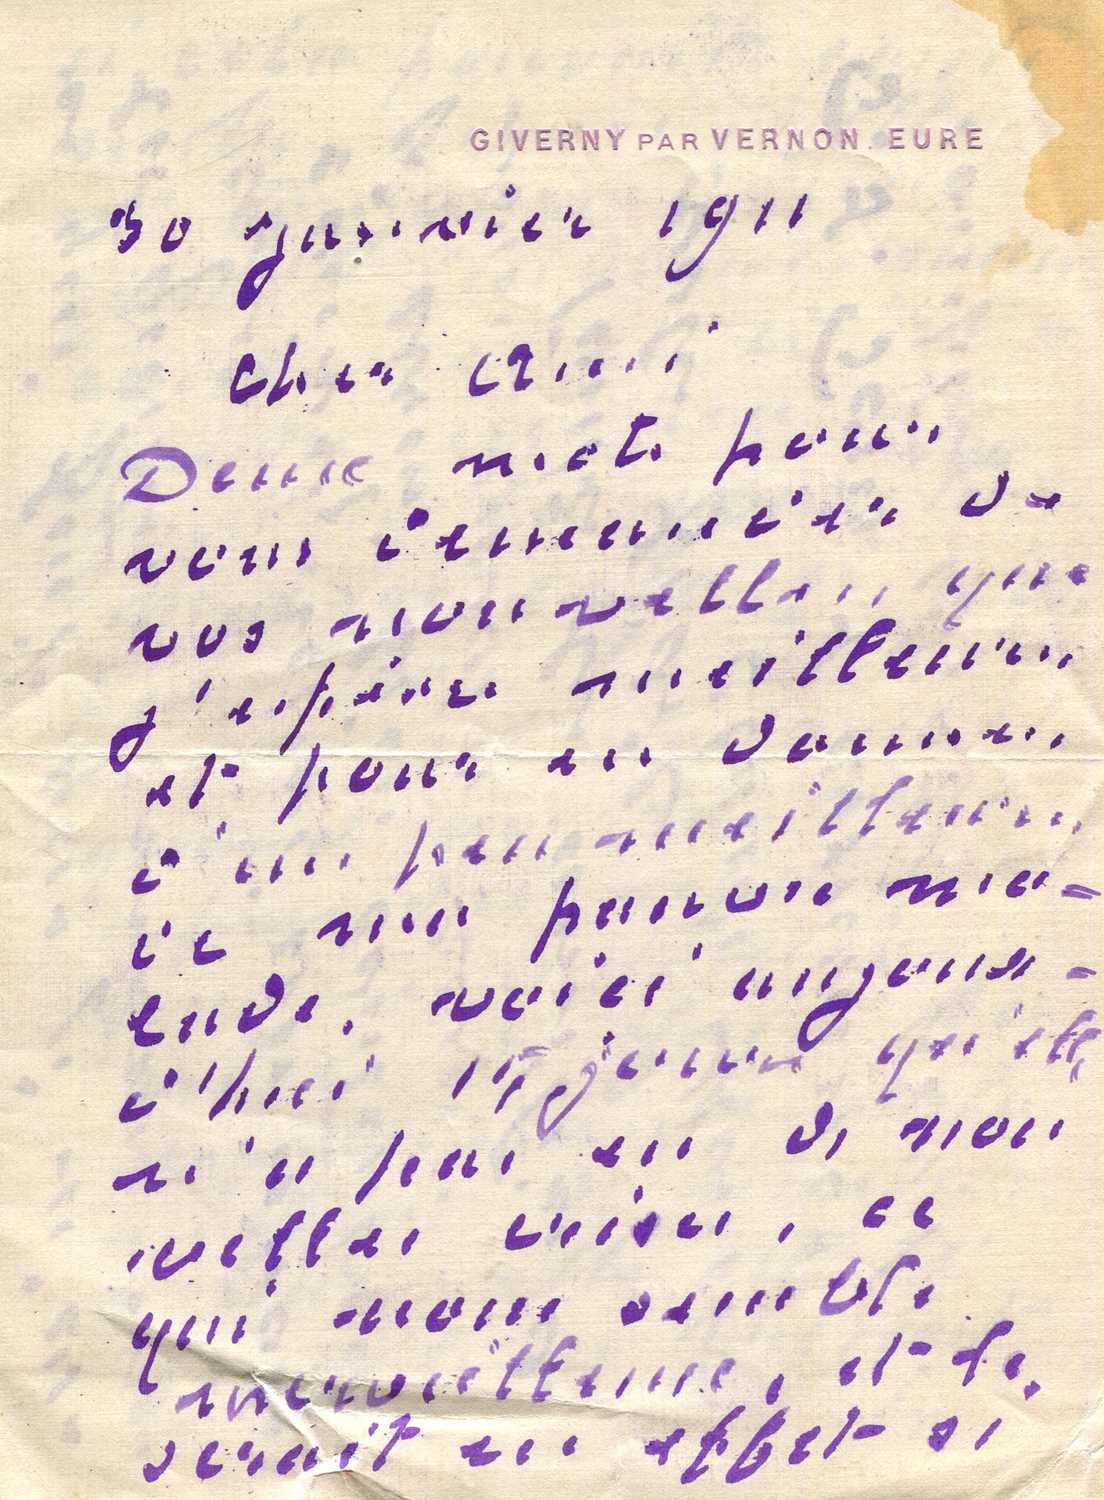 GIVERNY PAR VERNON. EURE
30 janvier 1911
Cher Ami
Deux mots pour
vous demander de
vos nouvelles, que
j'espère meilleures
et pour en donner
d'un peu meilleures
de ma pauvre ma-
lade, voici aujour-
d'hui 15 jours qu'elle
n'a pas eu de nou
velles crises, ce
qui nous semble
merveilleux, et le
serait en effet si